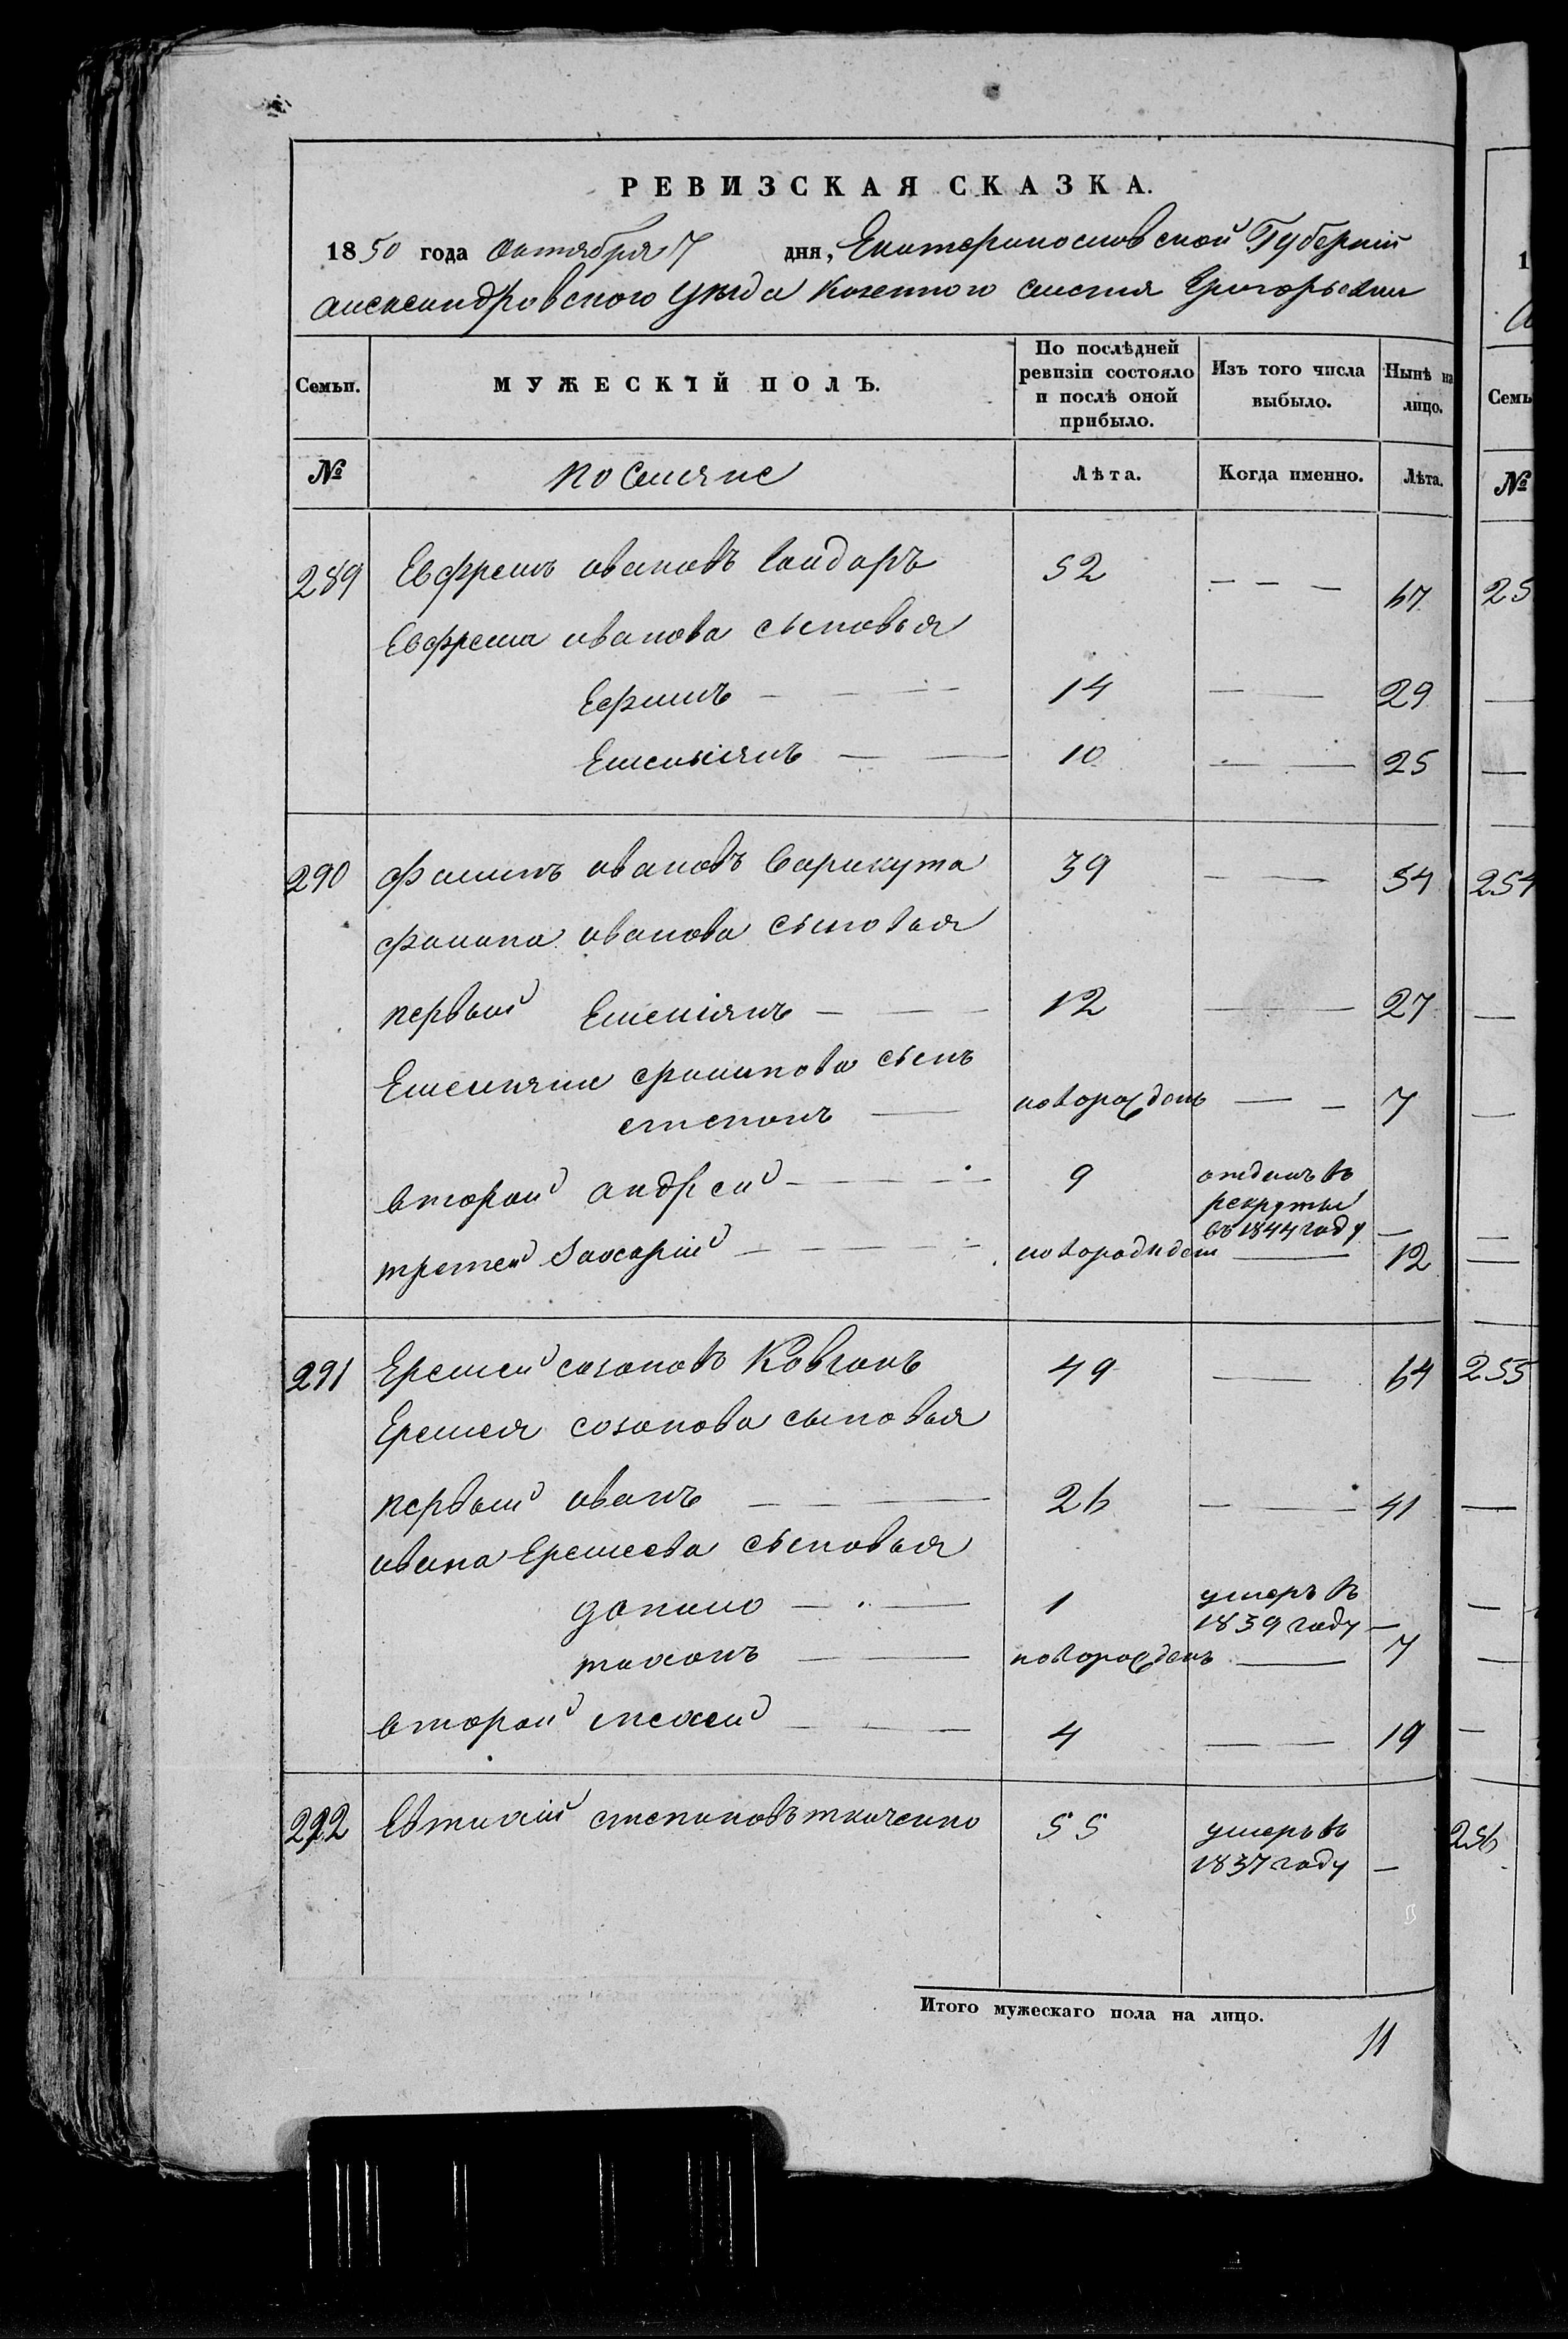 РЕВИЗСКАЯ СКАЗКА.
1850 года октября 7 дня, Екатеринославской Губернии
Александровского уезда Козенного селения Григорьевки
Семьи. МУЖЕСКІЙ ПОЛЪ. По послѣдней ревизіи состояло и послѣ оной прибыло. Изъ того числа выбыло. Нынѣ на лицо.
№ поселяне Лѣта. Когда именно. Лѣта.
289 Евфремъ ивановъ 52 — — — 67
Евфрема иванова сыновья
Ефимъ — — — 14 — — 29
Емельянъ — — 10 — — 25
290 филипъ ивановъ 39 — — 54
филипа иванова сыновья
первый Емельянъ — — — 12 — — 27
Емельяна филипова сынъ
степанъ — новорожденъ — — 7
второй андрей — — — — 9 отданъ въ
рекруты
въ 1844 году —
третей Захарій — — — — новорожденъ — 12
291 Еремей созоновъ Ковганъ 49 — 64
Еремея созонова сыновья
первый иванъ — — — 26 — — 41
ивана Еремеева сыновья
данило — — 1 умеръ въ
1839 году —
новорожденъ — 7
второй — — — 4 — — 19
292 Евтихій степановъ ткаченко 55 умеръ въ
1837 году —
Итого мужескаго пола на лицо.
11
1
Семь
№
25
254
255
256